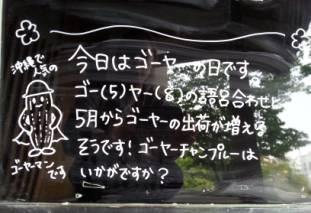 今日はゴーヤーの日です
ゴー(5)ヤー(8)の語呂合わせ
5月からゴーヤーの出荷が増える
そうです!ゴーヤーチャンプルーは
いかがですか?
沖縄で
人気の
ゴーヤーマン
です